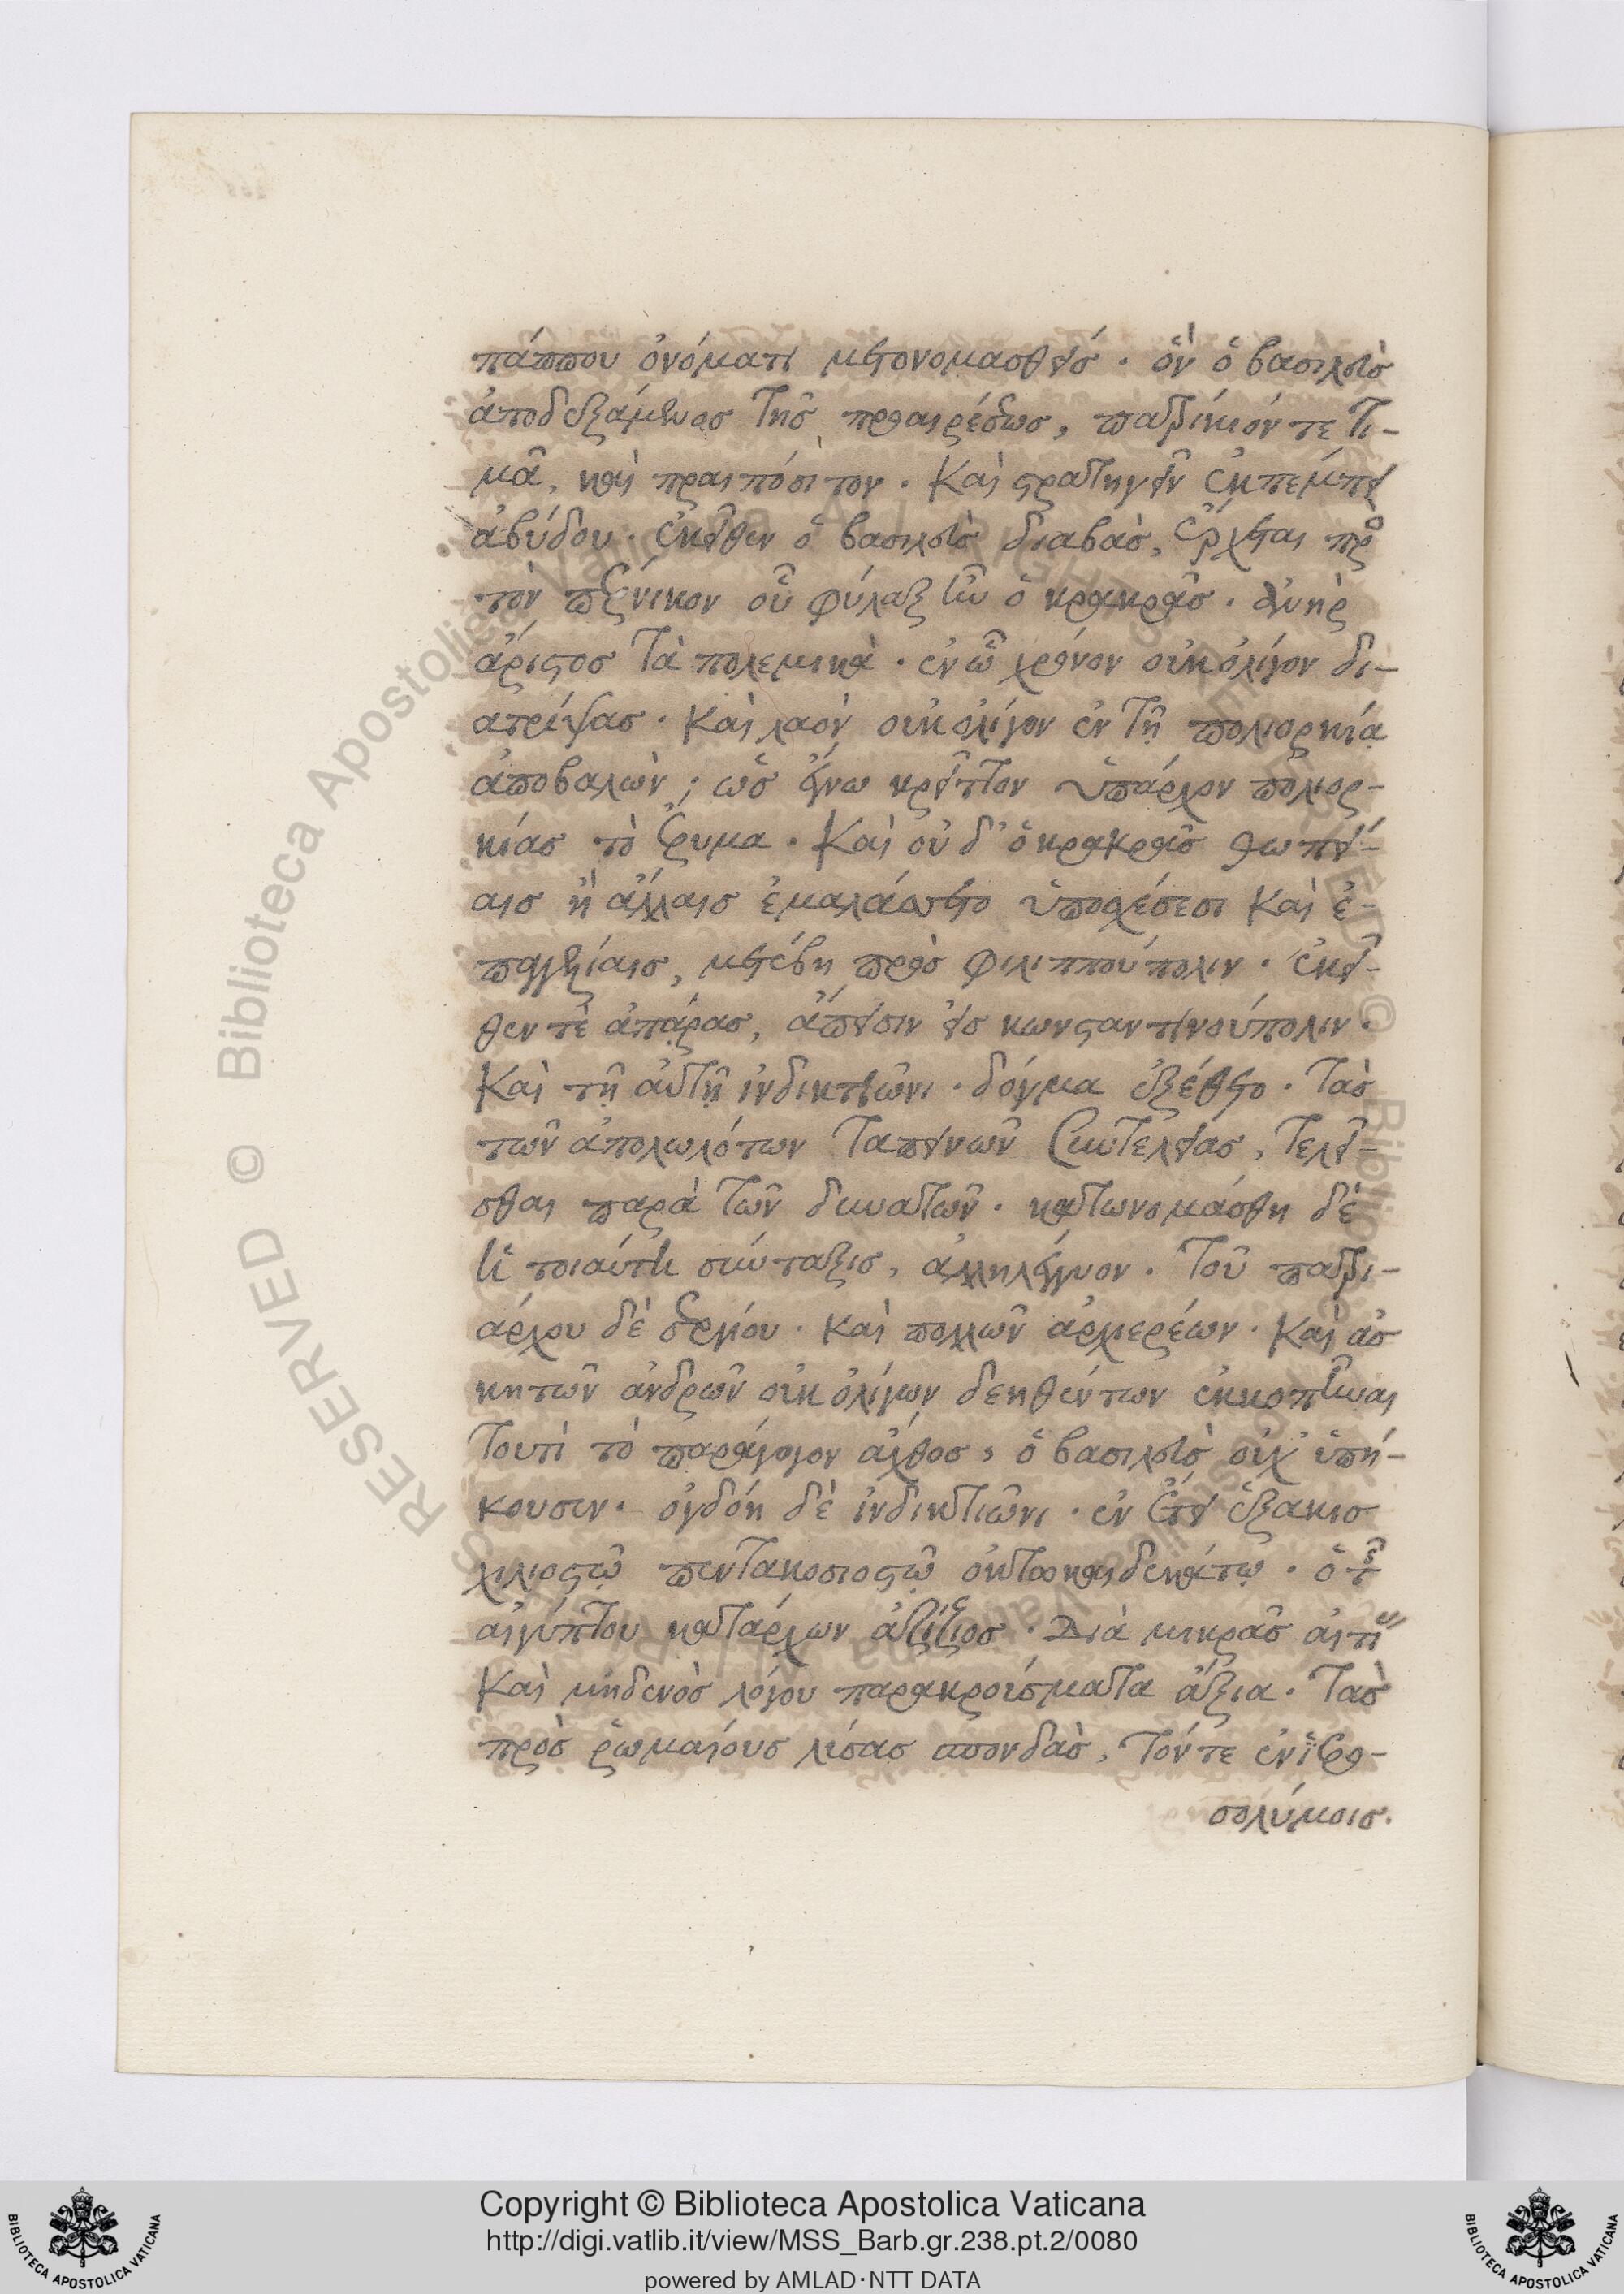 πάππου ὀνόματι μετονομασθείσ· ὃν ὁ βασιλεὺσ
ἀποδεξάμενοσ τῆσ προαιρέσεωσ, πατρίκιόν τε τι-
μᾶ, καὶ πραιπόσιτον· καὶ στρατηγεῖν ἐκπέμπει
ἀβύδου· ἐκεῖθεν ὁ βασιλεὺσ διαβὰσ, ἔρχεται πρὸ
τὸν πέρνικον οὗ φύλαξ ἦν ὁ κρακρᾶσ· ἀνὴρ
ἄριστοσ τὰ πολεμικὰ· ἐν ὧ χρόνον οὐκ ὀλίγον δι-
ατρίψασ· καὶ λαὸν οὐκ ὀλίγον ἐν τῇ πολιορκίᾳ
ἀποβαλὼν; ὡσ ἔγνω κρεῖττον ὑπάρχον πολιορ-
κίασ τὸ ἔρυμα· καὶ οὐδ' ὁ κρακρᾶσ θωπεί-
αισ ἢ ἄλλαισ ἐμαλάσσετο ὑποσχέσεσι καὶ ἐ-
παγγελίαισ, μετέβη πρὸσ φιλιππούπολιν· ἐκεῖ-
θεν τὲ ἀπάρασ, ἄπεισιν εἰσ κωνσταντινούπολιν·
καὶ τῇ αὐτῇ ἰνδικτιῶνι· δόγμα ἐξέθετο· τὰσ
τῶν ἀπολωλότων ταπεινῶν συντελείασ, τελεῖ-
σθαι παρὰ τῶν δυνατῶν· κατωνομάσθη δὲ
ἡ τοιαύτη σύνταξισ, ἀλληλέγγυον· τοῦ πατρι-
άρχου δὲ σεργίου· καὶ πολλῶν ἀρχιερέων· καὶ ἀσ
κητῶν ἀνδρῶν οὐκ ὀλίγων δεηθέντων ἐκκοπῆναι
τουτὶ τὸ παράλογον ἄχθοσ, ὁ βασιλεὺσ οὐχ' ὑπή-
κουσεν· ὀγδόη δὲ ἰνδικτιῶνι· ἐν ἔτει ἑξακισ
χιλιοστῷ πεντακοσιοστῷ ὀκτωκαιδεκάτῳ· ὁ τῆσ
αἰγύπτου κατάρχων ἀζίζιοσ· διὰ μικρᾶσ αἰτίασ
καὶ μηδενὸσ λόγου παρακρούσματα ἄξια· τὰσ
πρὸσ ῥωμαίουσ λύσασ σπονδὰσ, τόν τε ἐν ἱερο-
σολύμοισ.
Copyright © Biblioteca Apostolica Vaticana
http://digi.vatlib.it/view/MSS_Barb.gr.238.pt.2/0080
powered by AMLAD·NTT DATA